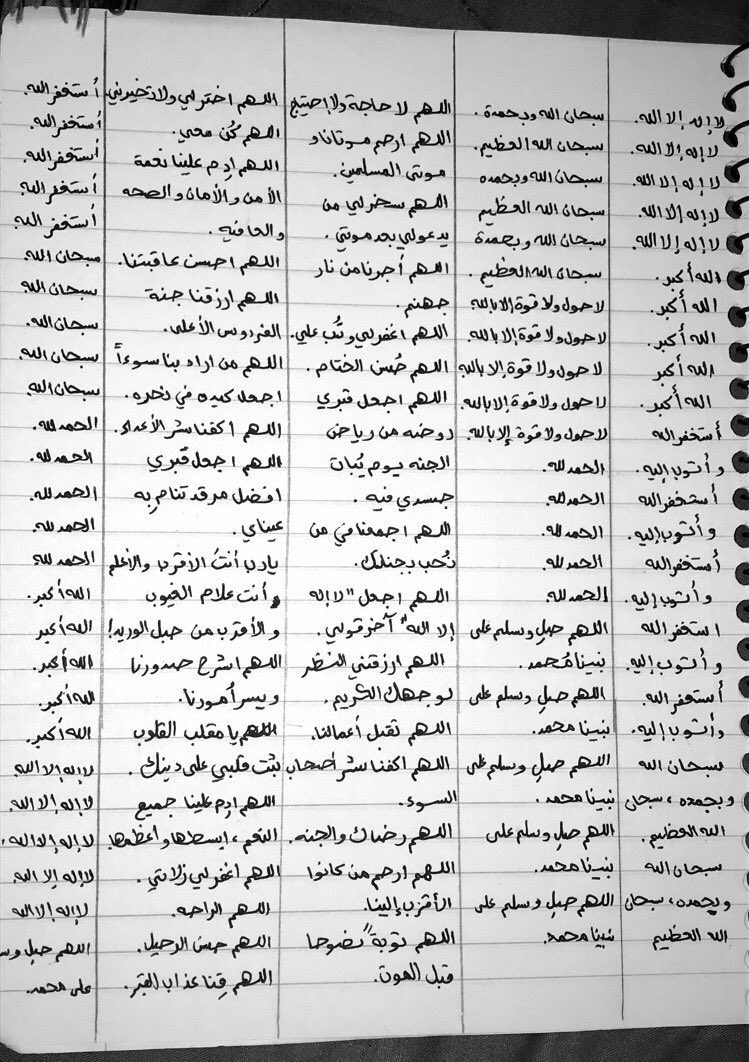 لا إله إلا الله.
لا إله إلا الله.
لا إله إلا الله.
لا إله إلا الله.
لا إله إلا الله.
الله أكبر.
الله أكبر.
الله أكبر.
الله أكبر
الله أكبر.
أستغفر الله
وأتوب إليه.
أستغفر الله
وأتوب إليه.
أستغفر الله
وأتوب إليه.
استغفر الله
وأتوب إليه.
أستغفر الله.
وأتوب إليه.
سبحان الله
وبحمده، سبحان
الله العظيم.
سبحان الله
وبحمده، سبحان
الله العظيم
سبحان الله وبحمدة.
سبحان الله العظيم.
سبحان الله وبحمده
سبحان الله العظيم
سبحان الله وبحمدة
سبحان الله العظيم.
لا حول ولا قوة إلا بالله.
لا حول ولا قوة إلا بالله.
لا حول ولا قوة إلا بالله
لا حول ولا قوة إلا بالله.
لا حول ولا قوة إلا بالله.
الحمدلله.
الحمدلله.
الحمدلله.
الحمدلله.
الحمدلله.
اللهم صلِ وسلم على
نبينا مُحمد.
اللهم صلِ وسلم على
نبينا محمد.
اللهم صلِ وسلم على
نبينا محمد.
اللهم صلِ وسلم على
نبينا محمد.
اللهم صلِ وسلم على
نبينا محمد.
اللهم لا حاجة ولا إحتيج
اللهم ارحم موتانا و
موتى المسلمين.
اللهم سخر لي من
يدعولي بعد موتي.
اللهم أجرنا من نار
جهنم.
اللهم اغفرلي وتُب علي.
اللهم حُسن الختام.
اللهم اجعل قبري
روضه من رياض
الجنه يوم يُبات
جسدي فيه.
اللهم اجمعنا في من
نُحب بجنتك.
اللهم اجعل "لا إله
إلا الله" آخر قولي.
اللهم ارزقني النظر
لوجهك الكريم.
اللهم تقبل أعمالنا.
اللهم اكفنا شر أصحاب
السوء.
اللهم رضاك والجنه.
اللهم ارحم من كانوا
الأقرب إلينا.
اللهم توبةً نصوحا
قبل الموت.
اللهم اختر لي ولا تخيرني.
اللهم كُن معي.
اللهم ادِم علينا نعمة
الأمن والأمان والصحه
والعافيه.
اللهم احسن عاقبتنا.
اللهم ارزقنا جنة
الفردوس الأعلى.
اللهم من اراد بنا سوءاً
اجعل كيده في نحره.
اللهم اكفنا شر الأعداء.
اللهم اجعل قبري
افضل مرقد تنام به
عيناي.
يارب أنتَ الأقرب والأعلم
وأنت علام الغيوب
والأقرب من حبل الوريد!
اللهم اشرح صدورنا
ويسر أمورنا.
اللهم يا مقلب القلوب
ثبت قلبي على دينك.
اللهم ادِم علينا جميع
النعم، ابسطها وأعظمها
اللهم اغفر لي زلاتي.
اللهم الراحه.
اللهم حسن الرحيل.
اللهم قِنا عذاب القبر.
أستغفر الله.
أستغفر الله.
أستغفر الله.
أستغفر الله.
أستغفر الله.
سبحان الله.
سبحان الله.
سبحان الله.
سبحان الله.
سبحان الله.
الحمدلله.
الحمدلله.
الحمدلله.
الحمدلله.
الحمدلله
الله أكبر.
الله أكبر
الله أكبر.
الله أكبر.
الله أكبر.
لا إله إلا الله
لا إله إلا الله.
لا إله إلا الله.
لا إله إلا الله
لا إله إلا الله
اللهم صلِ وس
على محمد.